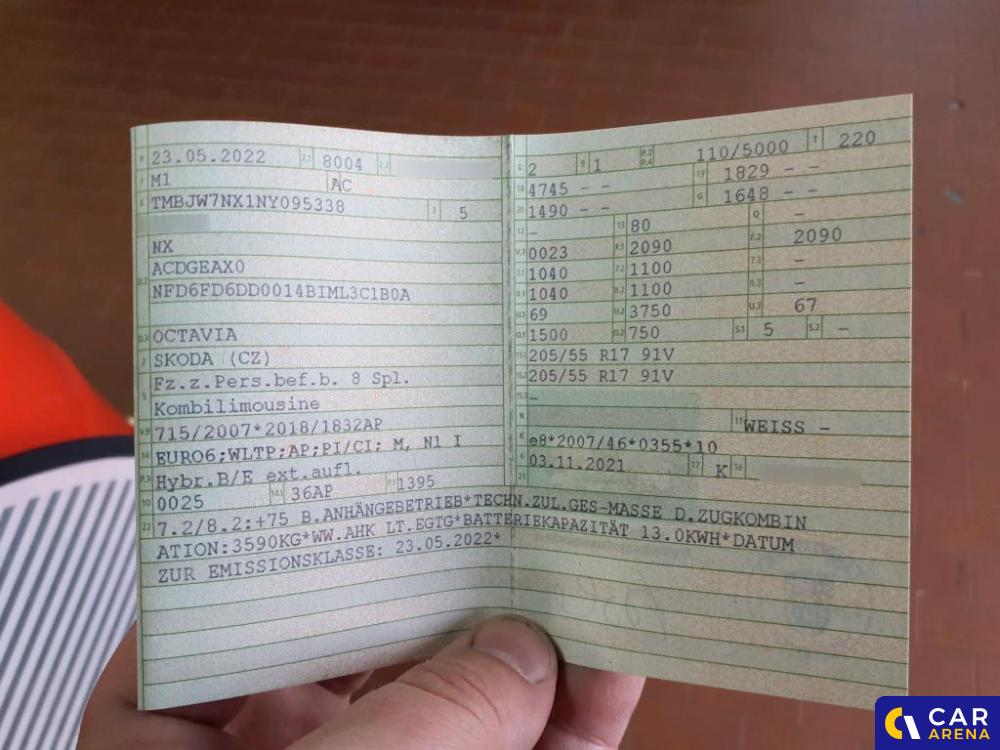 B 23.05.2022 2.1 8004 2.2
J M1 AC
E TMBJW7NX1NY095338 3 5
NX
ACDGEAX0
D.2 NFD6FD6DD0014BIML3C1B0A
D.3 OCTAVIA
2 SKODA (CZ)
5 Fz.z.Pers.bef.b. 8 Spl.
Kombilimousine
V.9 715/2007*2018/1832AP
14 EURO6;WLTP;AP;PI/CI; M, N1 I
P.3 Hybr.B/E ext.aufl.
10 0025 14.1 36AP P.1 1395
22 7.2/8.2:+75 B.ANHÄNGEBETRIEB*TECHN.ZUL.GES-MASSE D.ZUGKOMBIN
ATION:3590KG*WW.AHK LT.EGTG*BATTERIEKAPAZITÄT 13.0KWH*DATUM
ZUR EMISSIONSKLASSE: 23.05.2022*
L 2 9 1 P.2 P.4 110/5000 T 220
18 4745 - - 19 1829 - -
20 1490 - - G 1648 - -
12 - 13 80 Q -
V.7 0023 F.1 2090 F.2 2090
7.1 1040 7.2 1100 7.3 -
8.1 1040 8.2 1100 8.3 -
U.1 69 U.2 3750 U.3 67
O.1 1500 O.2 750 S.1 5 S.2 -
15.1 205/55 R17 91V
15.2 205/55 R17 91V
15.3 -
R 11 WEISS -
K e8*2007/46*0355*10
6 03.11.2021 17 K 16
21
CAR
ARENA